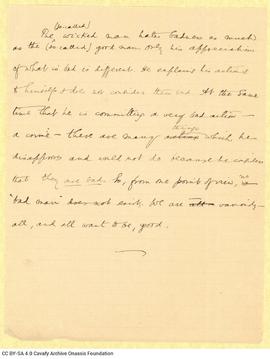 (so-called)
The wicked man hates badness as much
as the (so called) good man, only his appreciation
of what is bad is different. He explains his actions
to himself & does not consider them bad. At the same
time that he is committing a very bad action —
a crime — there are many actions things which he
disapproves and would not do because he considers
that they are bad. So, from one point of view, the
"bad man" does not exist. We are all
all, and all want to be, good.
CC BY-SA 4.0 Cavafy Archive Onassis Foundation